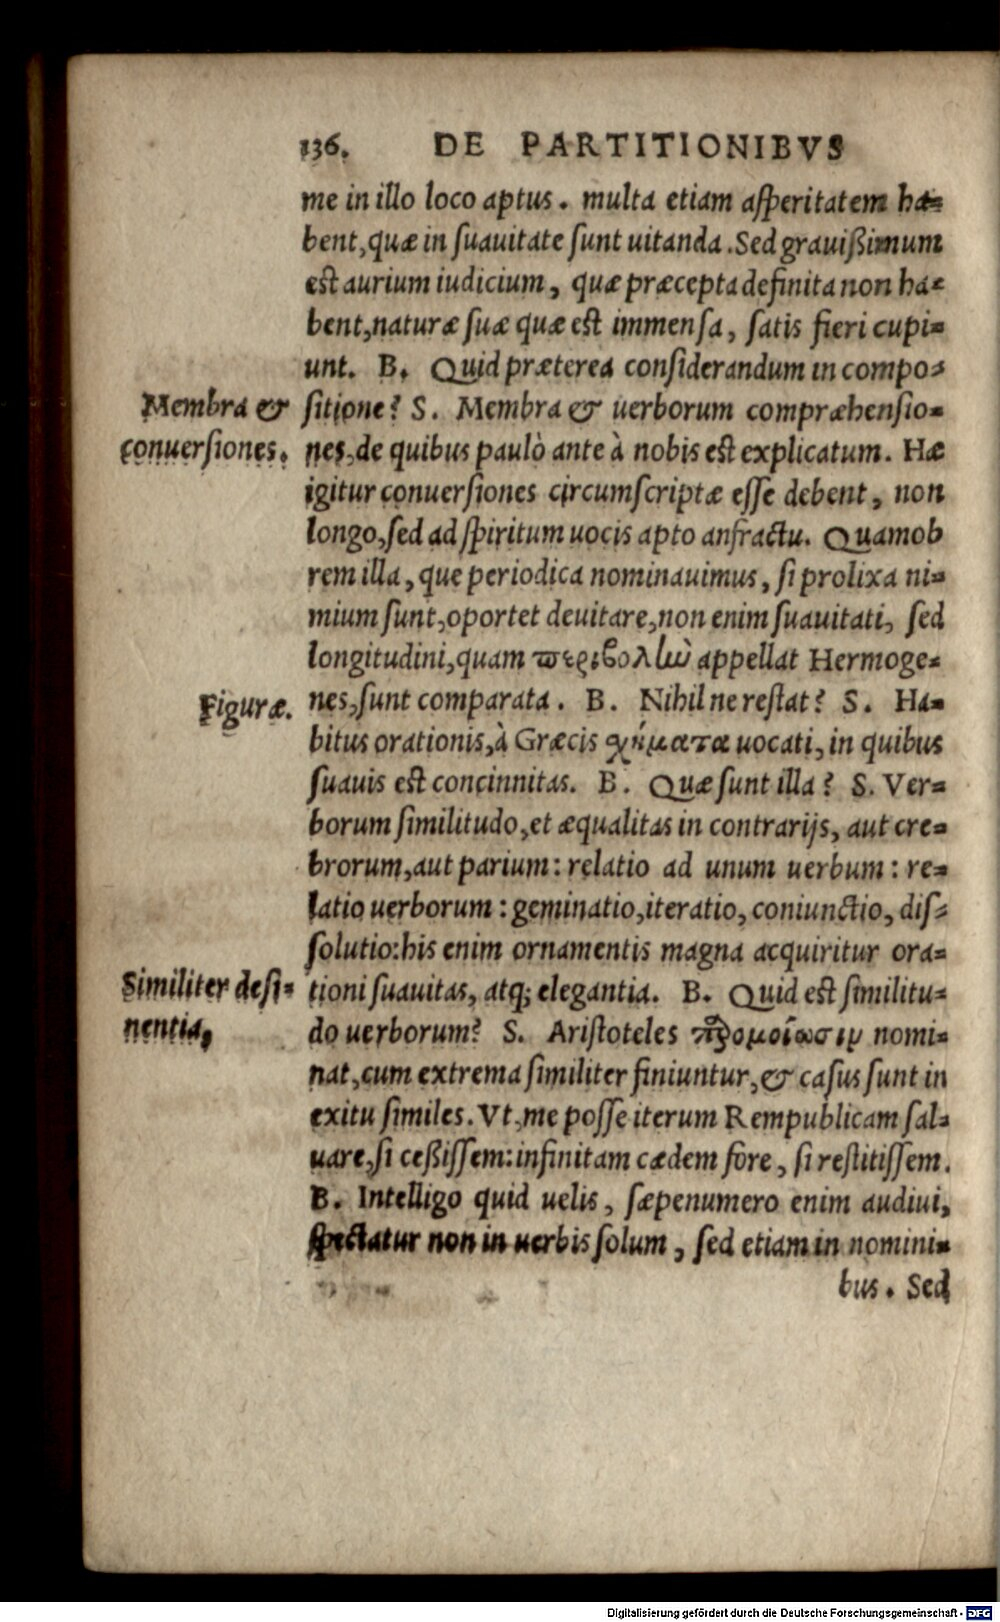 136. DE PARTITIONIBVS
me in illo loco aptus. multa etiam asperitatem ha=
bent, quæ in suauitate sunt uitanda. Sed grauißimum
est aurium iudicium, quæ præcepta definita non ha=
bent, naturæ suæ quæ est immensa, satis fieri cupi=
unt. B. Quid præterea considerandum in compo=
Membra &
conuersiones.
sitione? S. Membra & uerborum compræhensio=
nes, de quibus paulò ante à nobis est explicatum. Hæ
igitur conuersiones circumscriptæ esse debent, non
longo, sed ad spiritum uocis apto anfractu. Quamob
rem illa, que periodica nominauimus, si prolixa ni=
mium sunt, oportet deuitare, non enim suauitati, sed
longitudini, quam περιβολὴν appellat Hermoge=
Figuræ.
nes, sunt comparata. B. Nihil ne restat? S. Ha=
bitus orationis, à Græcis χήματα uocati, in quibus
suauis est concinnitas. B. Quæ sunt illa? S. Ver=
borum similitudo, et æqualitas in contrarijs, aut cre=
brorum, aut parium: relatio ad unum uerbum: re=
latio uerborum: geminatio, iteratio, coniunctio, dis=
solutio: his enim ornamentis magna acquiritur ora=
Similiter desi=
nentia,
tioni suauitas, atq; elegantia. B. Quid est similitu=
do uerborum? S. Aristoteles παρομοίωσιν nomi=
nat, cum extrema similiter finiuntur, & casus sunt in
exitu similes. Vt, me posse iterum Rempublicam sal=
uare, si ceßissem: infinitam cædem fore, si restitissem.
B. Intelligo quid uelis, sæpenumero enim audiui,
spectatur non in uerbis solum, sed etiam in nomini=
bus. Sed
Digitalisierung gefördert durch die Deutsche Forschungsgemeinschaft - DFG